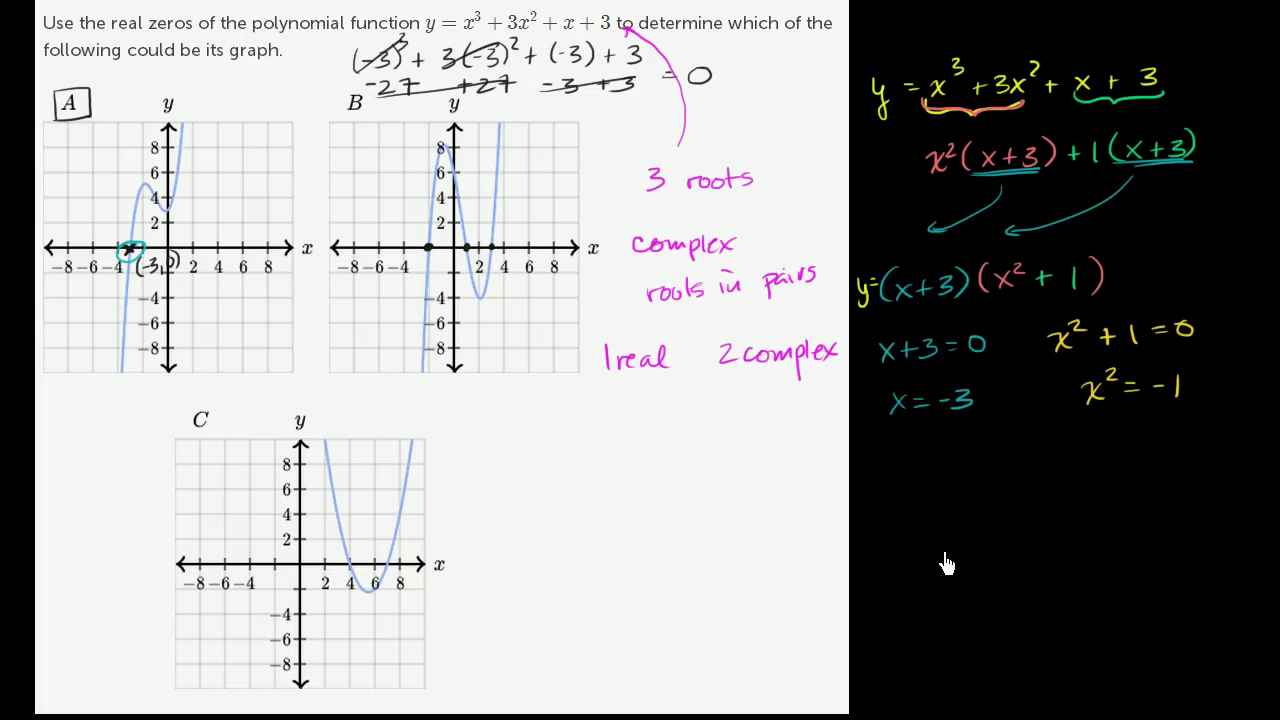 Use the real zeros of the polynomial function y = x³ + 3x² + x + 3 to determine which of the
following could be its graph.
(-3)³ + 3(-3)² + (-3) + 3
-27 +27 -3 +3 = 0
A
y
8
6
4
2
-8 -6 -4 2 4 6 8
x
(-3,0)
-4
-6
-8
B
y
8
6
4
2
-8 -6 -4 2 4 6 8
x
-4
-6
-8
3 roots
complex
roots in pairs
1 real 2 complex
C
y
8
6
4
2
-8 -6 -4 2 4 6 8
x
-4
-6
-8
y = x³ + 3x² + x + 3
x²(x+3) + 1(x+3)
y=(x+3)(x² + 1)
x+3=0 x² + 1 = 0
x = -3 x² = -1